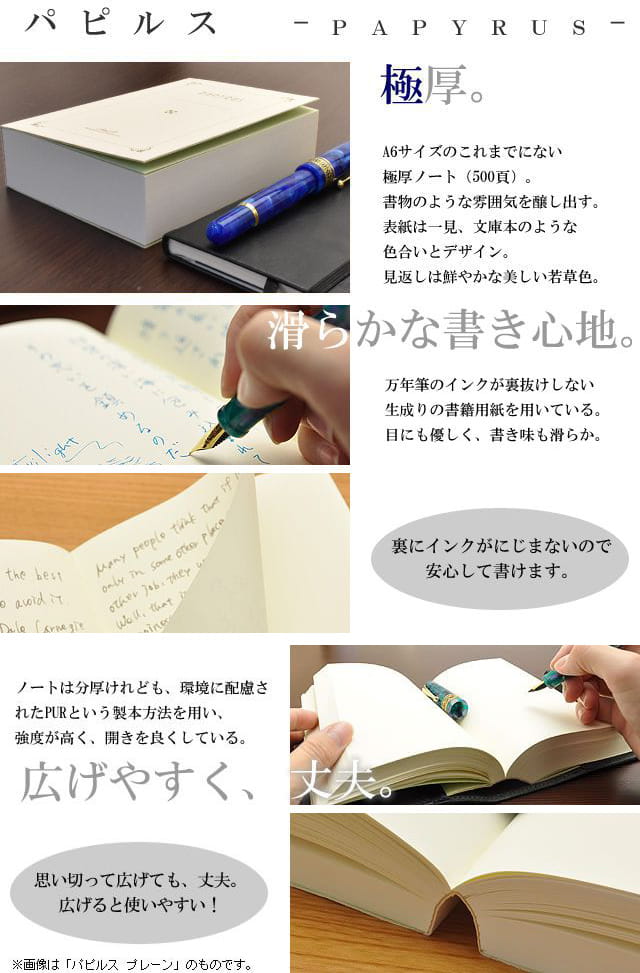 パピルス － PAPYRUS －
極厚。
A6サイズのこれまでにない
極厚ノート（500頁）。
書物のような雰囲気を醸し出す。
表紙は一見、文庫本のような
色合いとデザイン。
見返しは鮮やかな美しい若草色。
滑らかな書き心地。
万年筆のインクが裏抜けしない
生成りの書籍用紙を用いている。
目にも優しく、書き味も滑らか。
the best
avoid it
Dale Carnegie
Many people think that if
only in some other place
other job, they
裏にインクがにじまないので
安心して書けます。
ノートは分厚けれども、環境に配慮さ
れたPURという製本方法を用い、
強度が高く、開きを良くしている。
広げやすく、丈夫。
思い切って広げても、丈夫。
広げると使いやすい！
※画像は「パピルス プレーン」のものです。